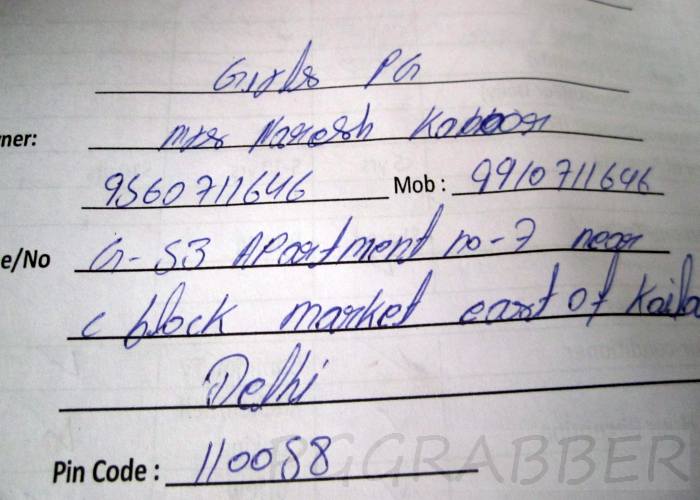 Girls PG
ner: Mrs Naresh Kapoor
9560711646 Mob : 9910711646
e/No G-53 Apartment no-7 near
c block market east of Kaila
Delhi
Pin Code : 110058
PGGRABBER